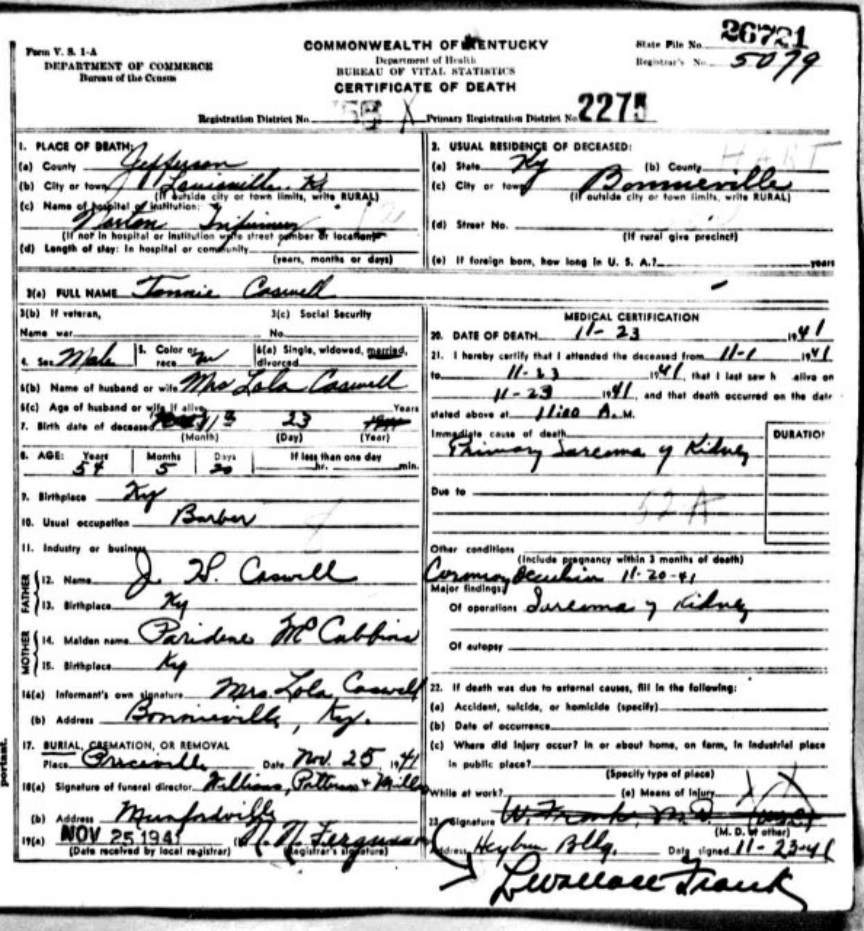 Form V. S. 1-A
DEPARTMENT OF COMMERCE
Bureau of the Census
COMMONWEALTH OF KENTUCKY
Department of Health
BUREAU OF VITAL STATISTICS
CERTIFICATE OF DEATH
State File No. 26721
Registrar's No. 5079
Registration District No. Primary Registration District No. 2275
1. PLACE OF DEATH:
(a) County Jefferson
(b) City or town Louisville, Ky
(If outside city or town limits, write RURAL)
(c) Name of hospital or institution:
Norton Infirmary
(If not in hospital or institution write street number or location)
(d) Length of stay: In hospital or community
(years, months or days)
2. USUAL RESIDENCE OF DECEASED:
(a) State Ky (b) County HART
(c) City or town Bonnieville
(If outside city or town limits, write RURAL)
(d) Street No.
(If rural give precinct)
(e) If foreign born, how long in U. S. A.? years
3(a) FULL NAME Tonnie Caswell
3(b) If veteran,
Name war
3(c) Social Security
No.
4. Sex Male 5. Color or race w 6(a) Single, widowed, married, divorced
6(b) Name of husband or wife Mrs Lola Caswell
6(c) Age of husband or wife if alive Years
7. Birth date of deceased 23
(Month) (Day) (Year)
8. AGE: Years Months Days If less than one day
54 5 20 hr. min.
9. Birthplace Ky
10. Usual occupation Barber
11. Industry or business
FATHER
12. Name J. W. Caswell
13. Birthplace Ky
MOTHER
14. Maiden name Paridene McCubbins
15. Birthplace Ky
16(a) Informant's own signature Mrs. Lola Caswell
(b) Address Bonnieville, Ky.
17. BURIAL, CREMATION, OR REMOVAL
Place Priceville Date Nov. 25 1941
18(a) Signature of funeral director Williams, Patterson & Mills
(b) Address Munfordville
19(a) NOV 25 1941 (b) N. N. Ferguson
(Date received by local registrar) (Registrar's signature)
MEDICAL CERTIFICATION
20. DATE OF DEATH 11-23 1941
21. I hereby certify that I attended the deceased from 11-1 1941
to 11-23 1941, that I last saw h alive on
11-23 1941, and that death occurred on the date
stated above at 11:20 A. M.
Immediate cause of death
Primary Sarcoma of Kidney
DURATION
Due to
52A
Other conditions
(Include pregnancy within 3 months of death)
Coronary Occlusion 11-20-41
Major findings:
Of operations Sarcoma of Kidney
Of autopsy
22. If death was due to external causes, fill in the following:
(a) Accident, suicide, or homicide (specify)
(b) Date of occurrence
(c) Where did injury occur? In or about home, on farm, in industrial place
in public place?
(Specify type of place)
While at work? (e) Means of injury
23. Signature W. Frank, M.D.
(M. D. or other)
Address Heyburn Bldg. Date signed 11-23-41
L. Wallace Frank
portant.